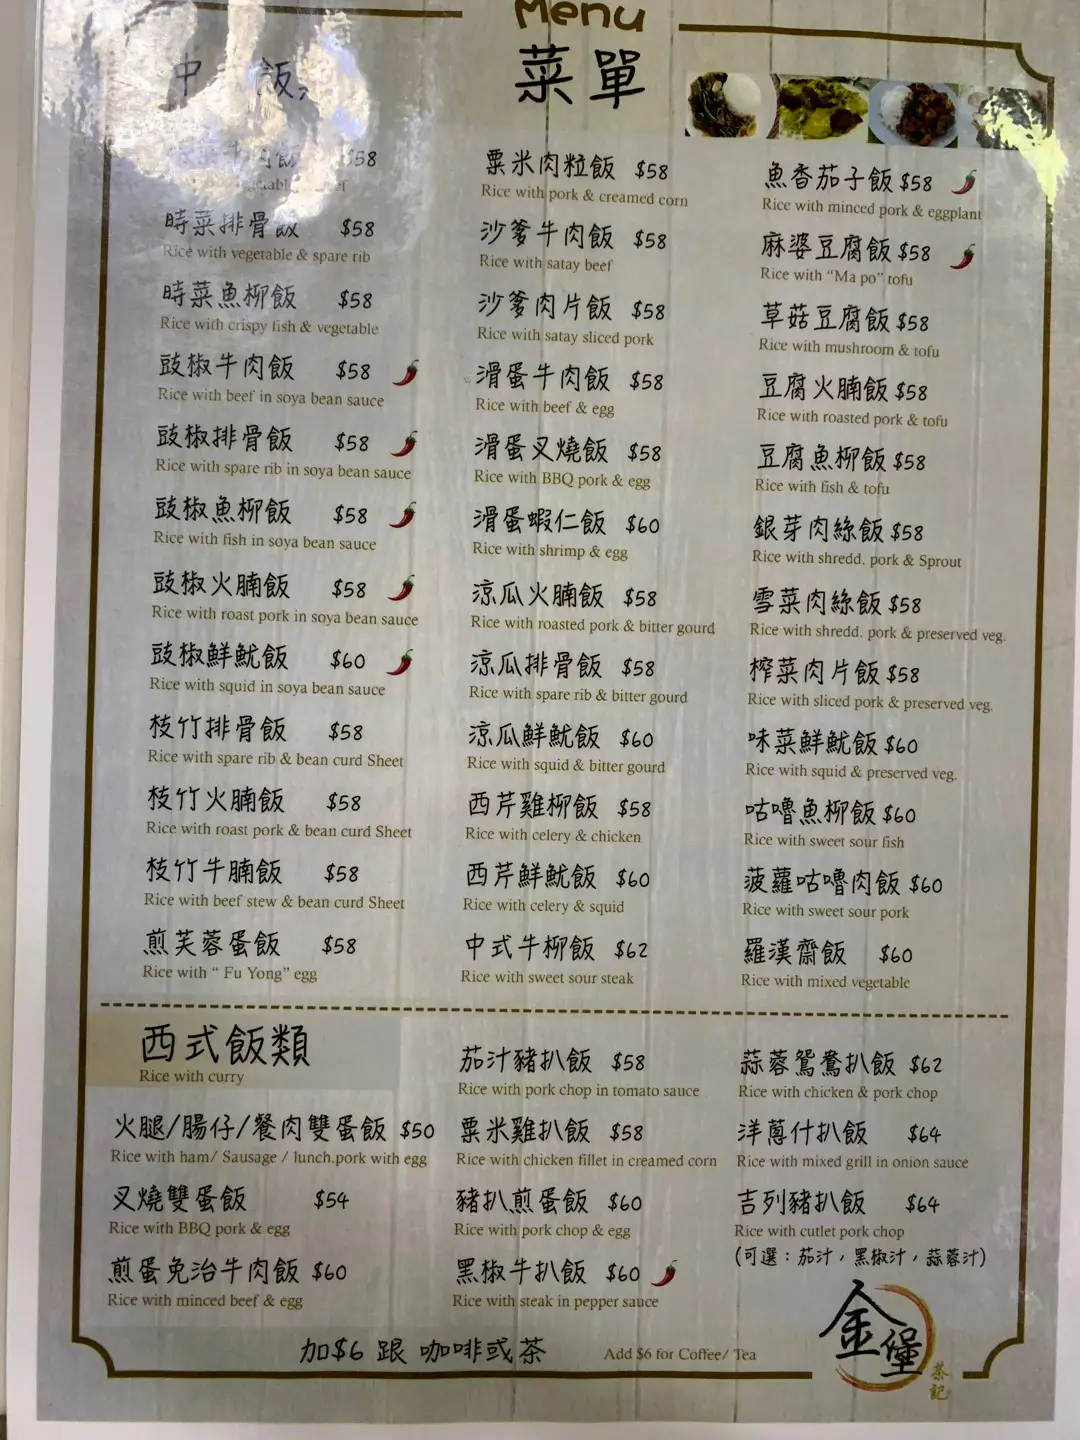 Menu
菜單
中 飯
牛肉飯 $58
時菜排骨飯 $58
Rice with vegetable & spare rib
時菜魚柳飯 $58
Rice with crispy fish & vegetable
豉椒牛肉飯 $58
Rice with beef in soya bean sauce
豉椒排骨飯 $58
Rice with spare rib in soya bean sauce
豉椒魚柳飯 $58
Rice with fish in soya bean sauce
豉椒火腩飯 $58
Rice with roast pork in soya bean sauce
豉椒鮮魷飯 $60
Rice with squid in soya bean sauce
枝竹排骨飯 $58
Rice with spare rib & bean curd Sheet
枝竹火腩飯 $58
Rice with roast pork & bean curd Sheet
枝竹牛腩飯 $58
Rice with beef stew & bean curd Sheet
煎芙蓉蛋飯 $58
Rice with “ Fu Yong” egg
粟米肉粒飯 $58
Rice with pork & creamed corn
沙爹牛肉飯 $58
Rice with satay beef
沙爹肉片飯 $58
Rice with satay sliced pork
滑蛋牛肉飯 $58
Rice with beef & egg
滑蛋叉燒飯 $58
Rice with BBQ pork & egg
滑蛋蝦仁飯 $60
Rice with shrimp & egg
涼瓜火腩飯 $58
Rice with roasted pork & bitter gourd
涼瓜排骨飯 $58
Rice with spare rib & bitter gourd
涼瓜鮮魷飯 $60
Rice with squid & bitter gourd
西芹雞柳飯 $58
Rice with celery & chicken
西芹鮮魷飯 $60
Rice with celery & squid
中式牛柳飯 $62
Rice with sweet sour steak
魚香茄子飯 $58
Rice with minced pork & eggplant
麻婆豆腐飯 $58
Rice with “Ma po” tofu
草菇豆腐飯 $58
Rice with mushroom & tofu
豆腐火腩飯 $58
Rice with roasted pork & tofu
豆腐魚柳飯 $58
Rice with fish & tofu
銀芽肉絲飯 $58
Rice with shredd. pork & Sprout
雪菜肉絲飯 $58
Rice with shredd. pork & preserved veg.
榨菜肉片飯 $58
Rice with sliced pork & preserved veg.
味菜鮮魷飯 $60
Rice with squid & preserved veg.
咕嚕魚柳飯 $60
Rice with sweet sour fish
菠蘿咕嚕肉飯 $60
Rice with sweet sour pork
羅漢齋飯 $60
Rice with mixed vegetable
西式飯類
Rice with curry
火腿/腸仔/餐肉雙蛋飯 $50
Rice with ham/ Sausage / lunch.pork with egg
叉燒雙蛋飯 $54
Rice with BBQ pork & egg
煎蛋免治牛肉飯 $60
Rice with minced beef & egg
茄汁豬扒飯 $58
Rice with pork chop in tomato sauce
粟米雞扒飯 $58
Rice with chicken fillet in creamed corn
豬扒煎蛋飯 $60
Rice with pork chop & egg
黑椒牛扒飯 $60
Rice with steak in pepper sauce
蒜蓉鴛鴦扒飯 $62
Rice with chicken & pork chop
洋蔥什扒飯 $64
Rice with mixed grill in onion sauce
吉列豬扒飯 $64
Rice with cutlet pork chop
(可選：茄汁，黑椒汁，蒜蓉汁)
加$6 跟 咖啡或茶 Add $6 for Coffee/ Tea
金堡
茶記